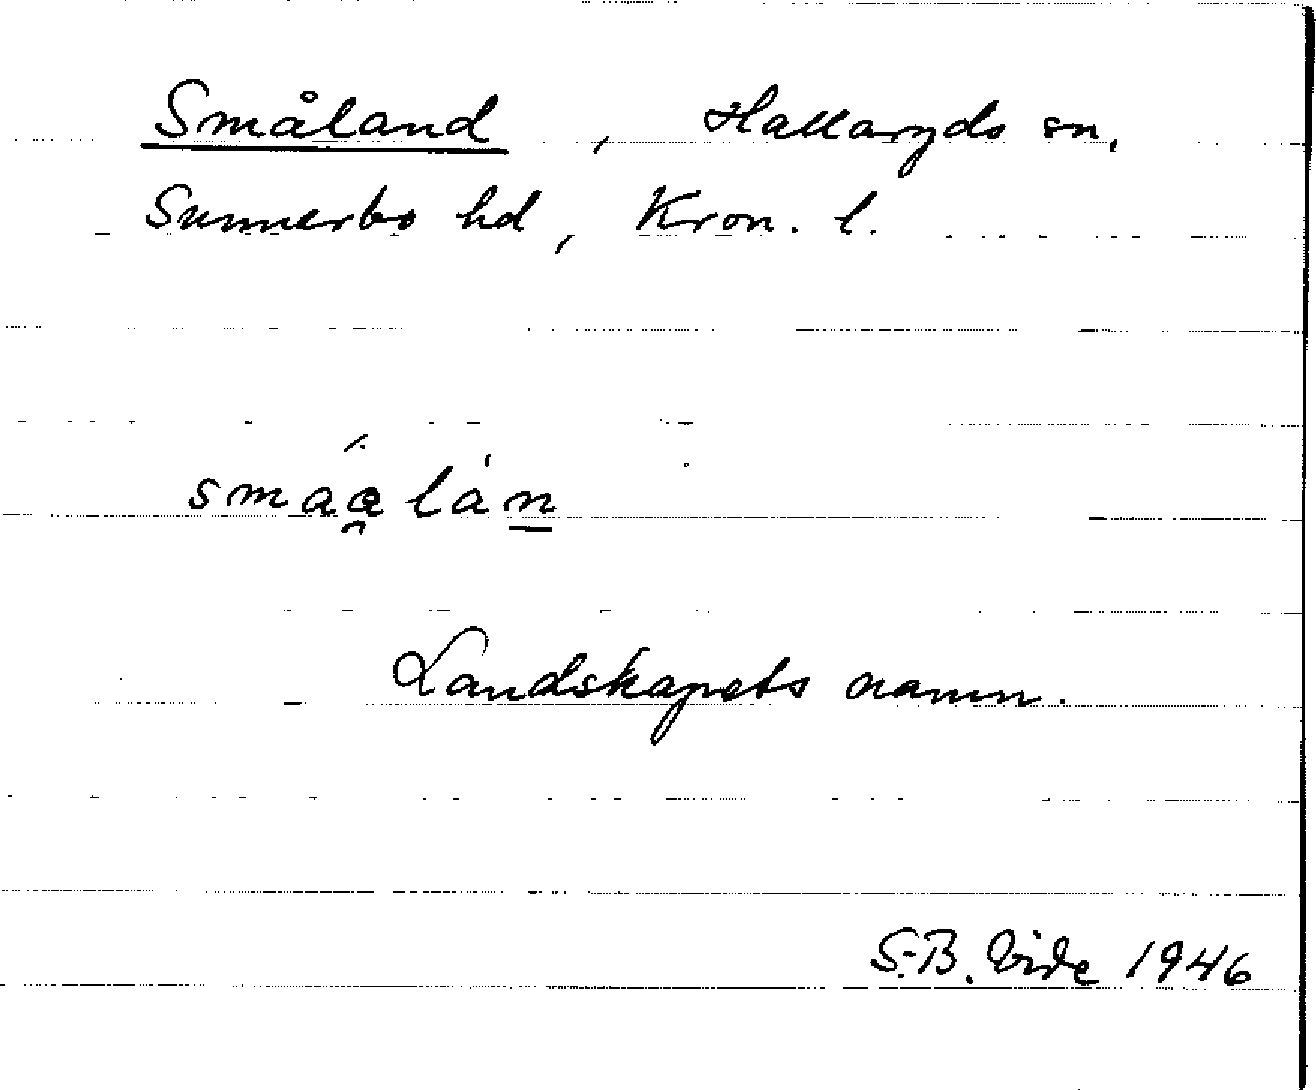 Småland, Hallaryds sn,
Sunnerbo hd, Kron. l.
smaa̯lán̲
Landskapets namn.
S.-B. Vide 1946